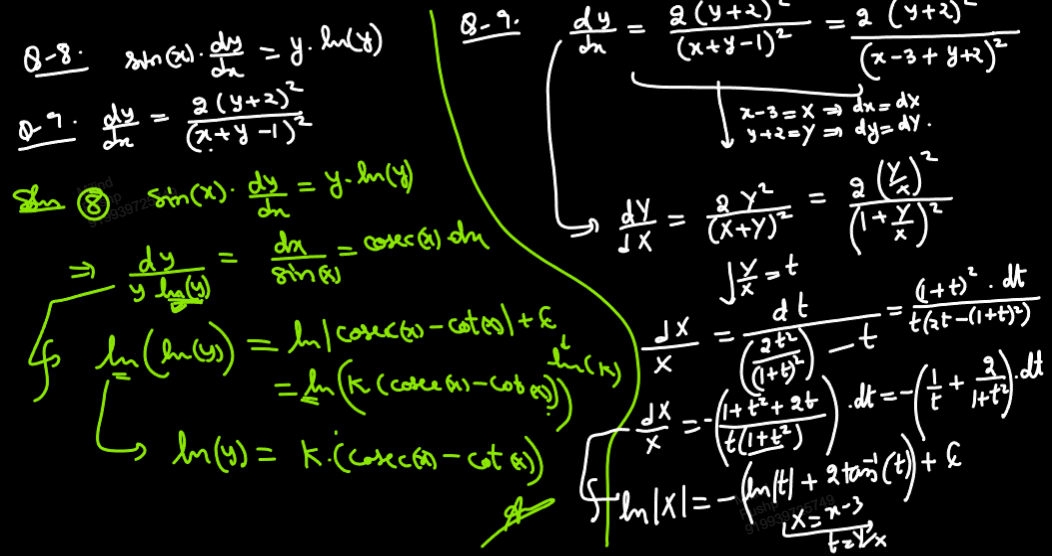 Q-8. sin(x).dy/dx = y.ln(y)
Q-9. dy/dx = 2(y+2)²/(x+y-1)²
Soln ⑧ sin(x).dy/dx = y.ln(y)
⇒ dy/(y ln(y)) = dx/sin(x) = cosec(x) dx
∫ ln(ln(y)) = ln|cosec(x) - cot(x)| + c
ln(k)
= ln(k(cosec(x) - cot(x)))
ln(y) = k.(cosec(x) - cot(x))
Q-9. dy/dx = 2(y+2)²/(x+y-1)² = 2(y+2)²/(x-3+y+2)²
x-3=X ⇒ dx=dX
y+2=Y ⇒ dy=dY.
dY/dX = 2Y²/(X+Y)² = 2(Y/x)²/(1+Y/x)²
Y/x = t
dX/X = dt/((2t²/(1+t)²) - t) = (1+t)².dt/(t(2t-(1+t)²))
dX/x = -((1+t²+2t)/(t(1+t²))).dt = -(1/t + 2/(1+t²)).dt
∫ ln|X| = -(ln|t| + 2tan⁻¹(t)) + c
X = x-3
t=Y/x